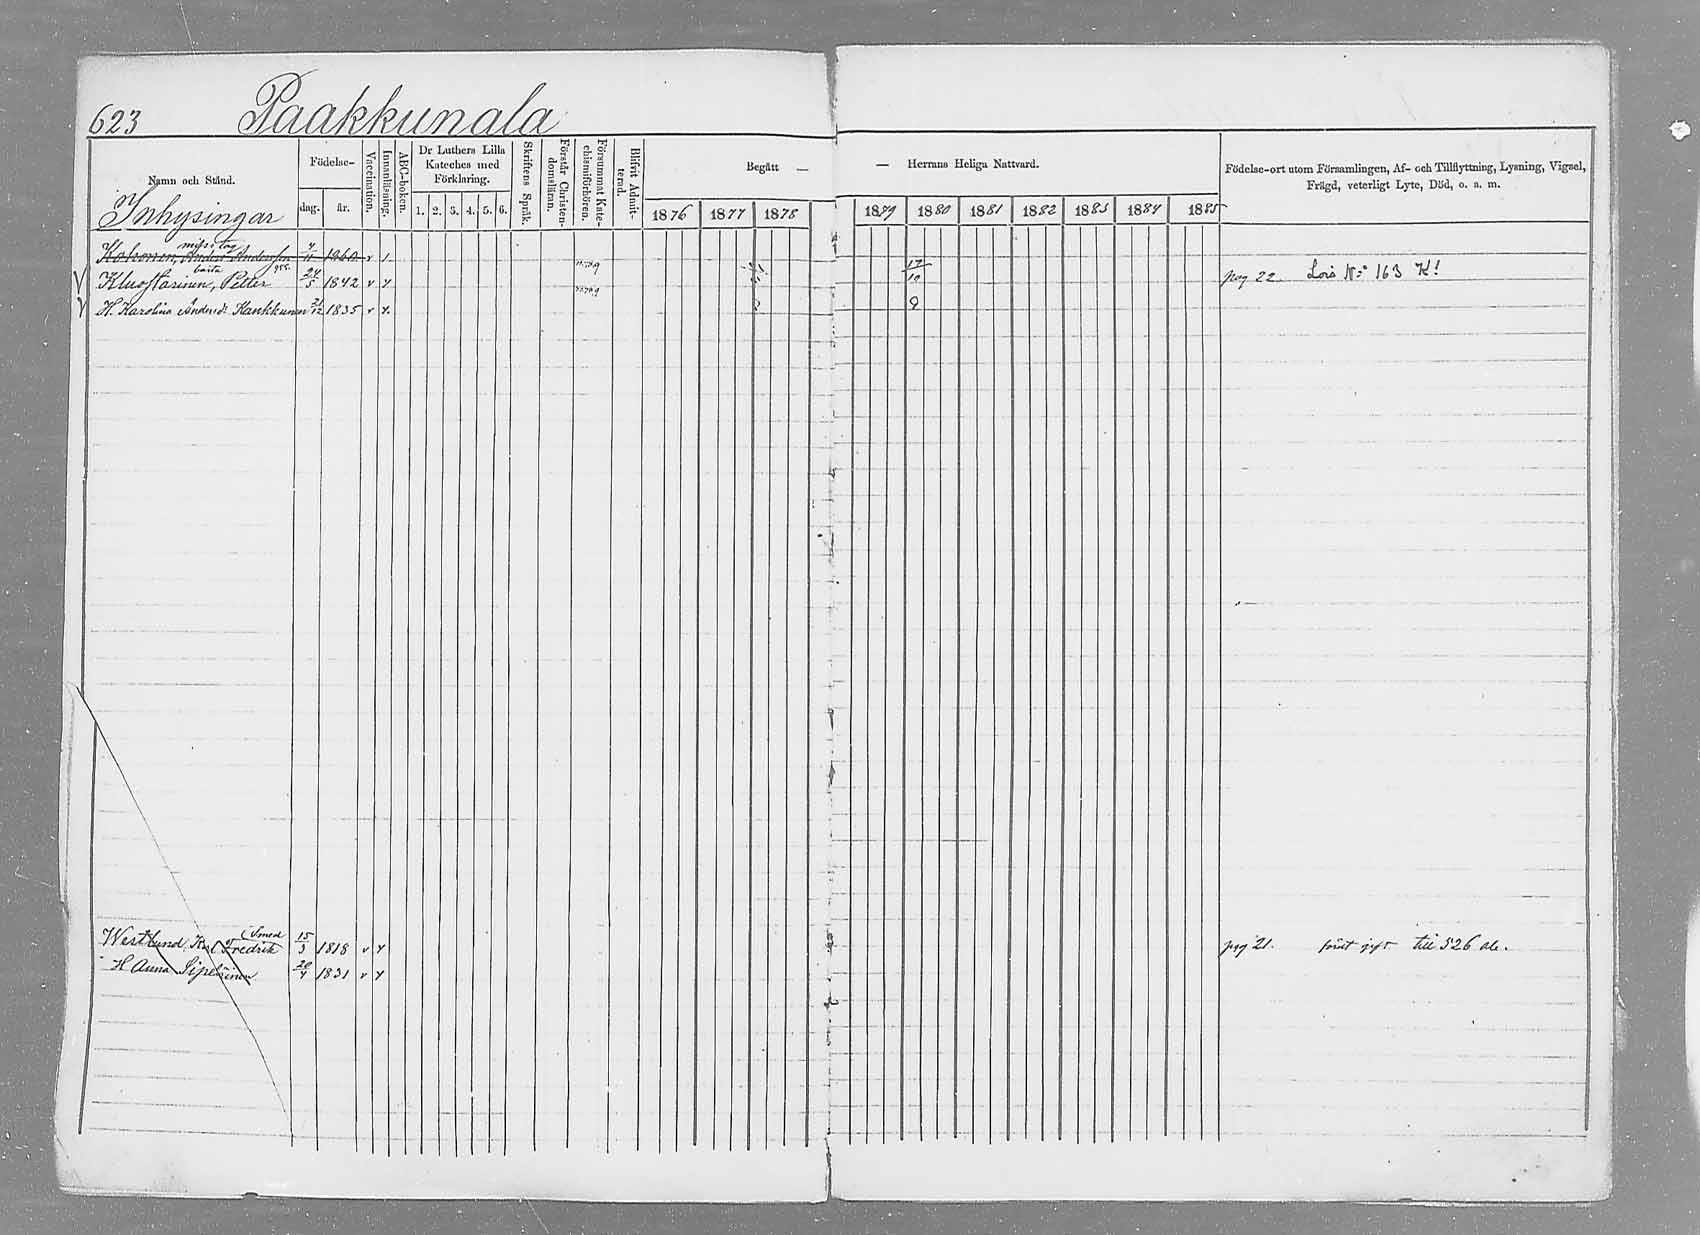 623 Paakkunala
Namn och Stånd.
Födelse-
dag. år.
Vaccination.
Innanläsning.
ABC-boken.
Dr Luthers Lilla Kateches med Förklaring.
1. 2. 3. 4. 5. 6.
Skriftens Språk.
Förstår Christen-domsläran.
Försummat Kate-chismiförhören.
Blifvit Admit-terad.
Begått —
— Herrans Heliga Nattvard.
1876 1877 1878 1879 1880 1881 1882 1883 1884 1885
Födelse-ort utom Församlingen, Af- och Tillflyttning, Lysning, Vigsel,
Frägd, veterligt Lyte, Död, o. a. m.
Inhysingar
misstag
Kokonen, Anders Andersson 4/11 1860 v 1
bärta 955.
Kluostarinen, Petter 24/5 1842 v y 17/10 pag 22. Lois No 163 K!
H. Karolina Andersd: Kankkunen 21/12 1835 v y.
(Smed
Westlund, Karl Fredrik 15/3 1818 v y pag 21. till 526 de.
H Anna Sipeläinen 20/4 1831 v y